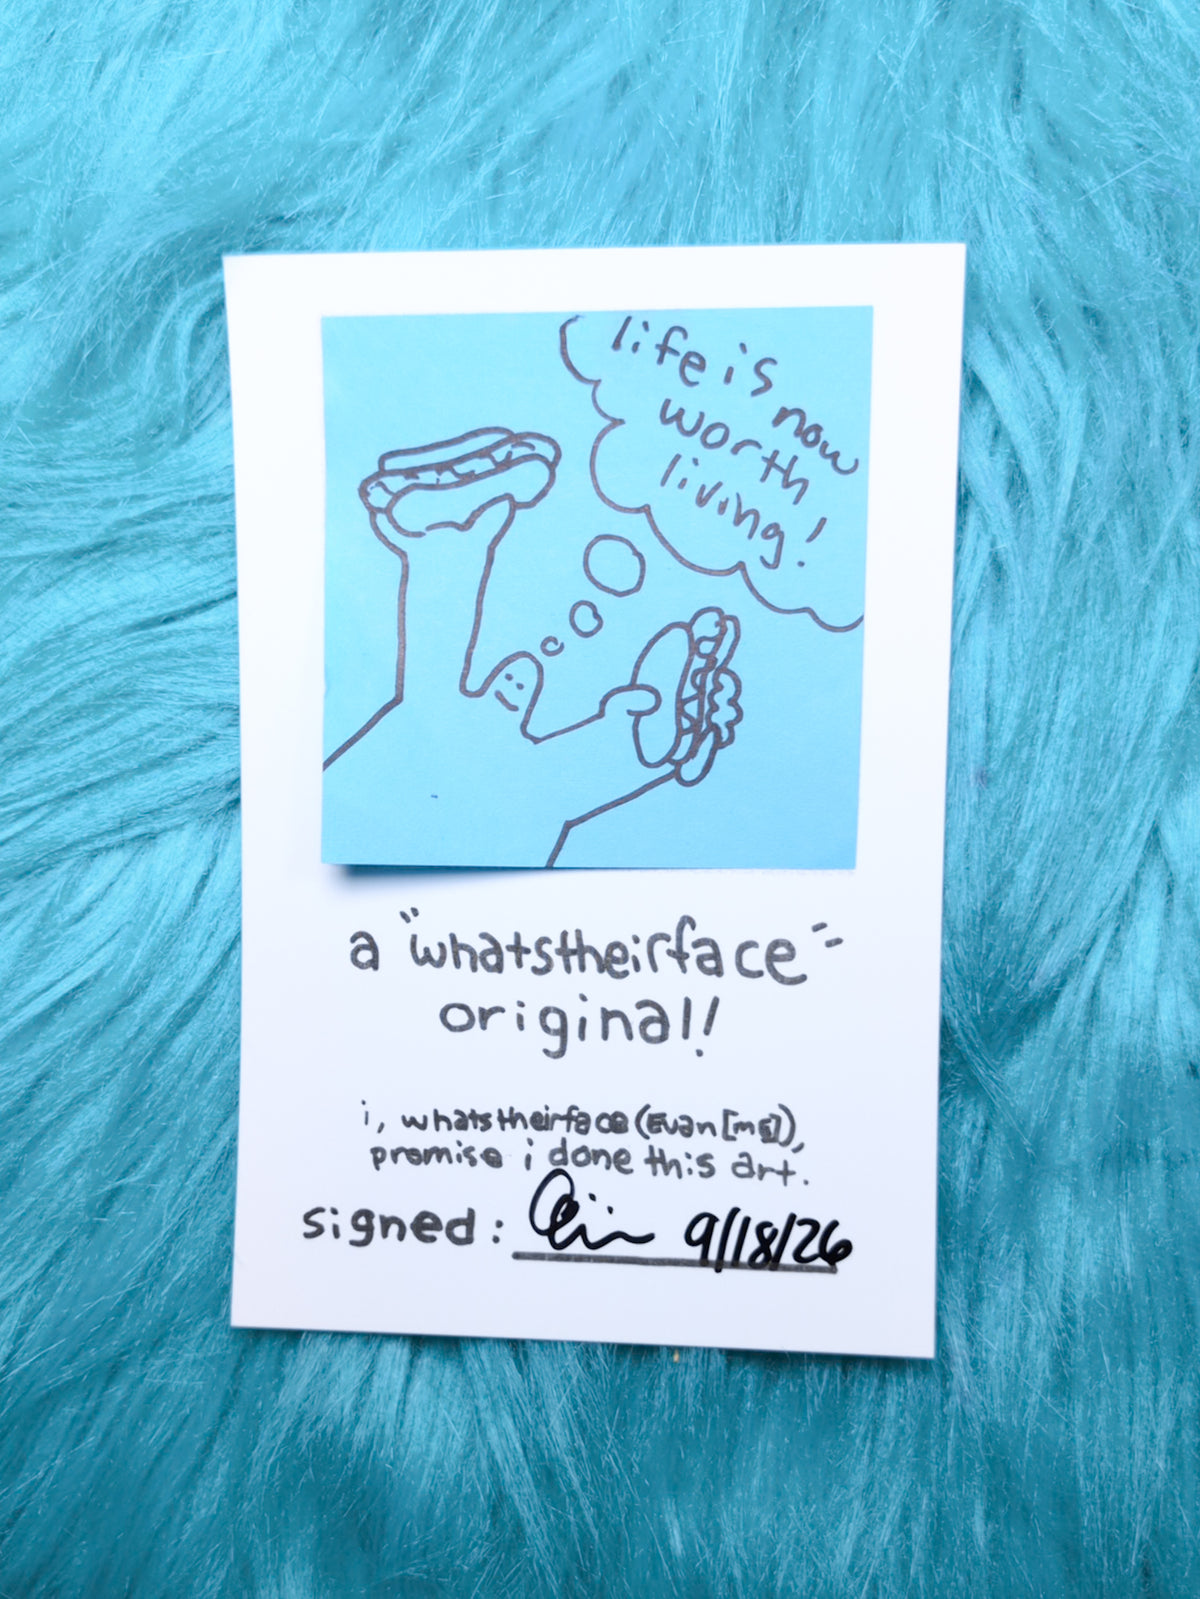 life is now
worth
living!
a "whatstheirface"
original!
i, whatstheirface (Evan [me]),
promise i done this art.
signed: 9/18/26